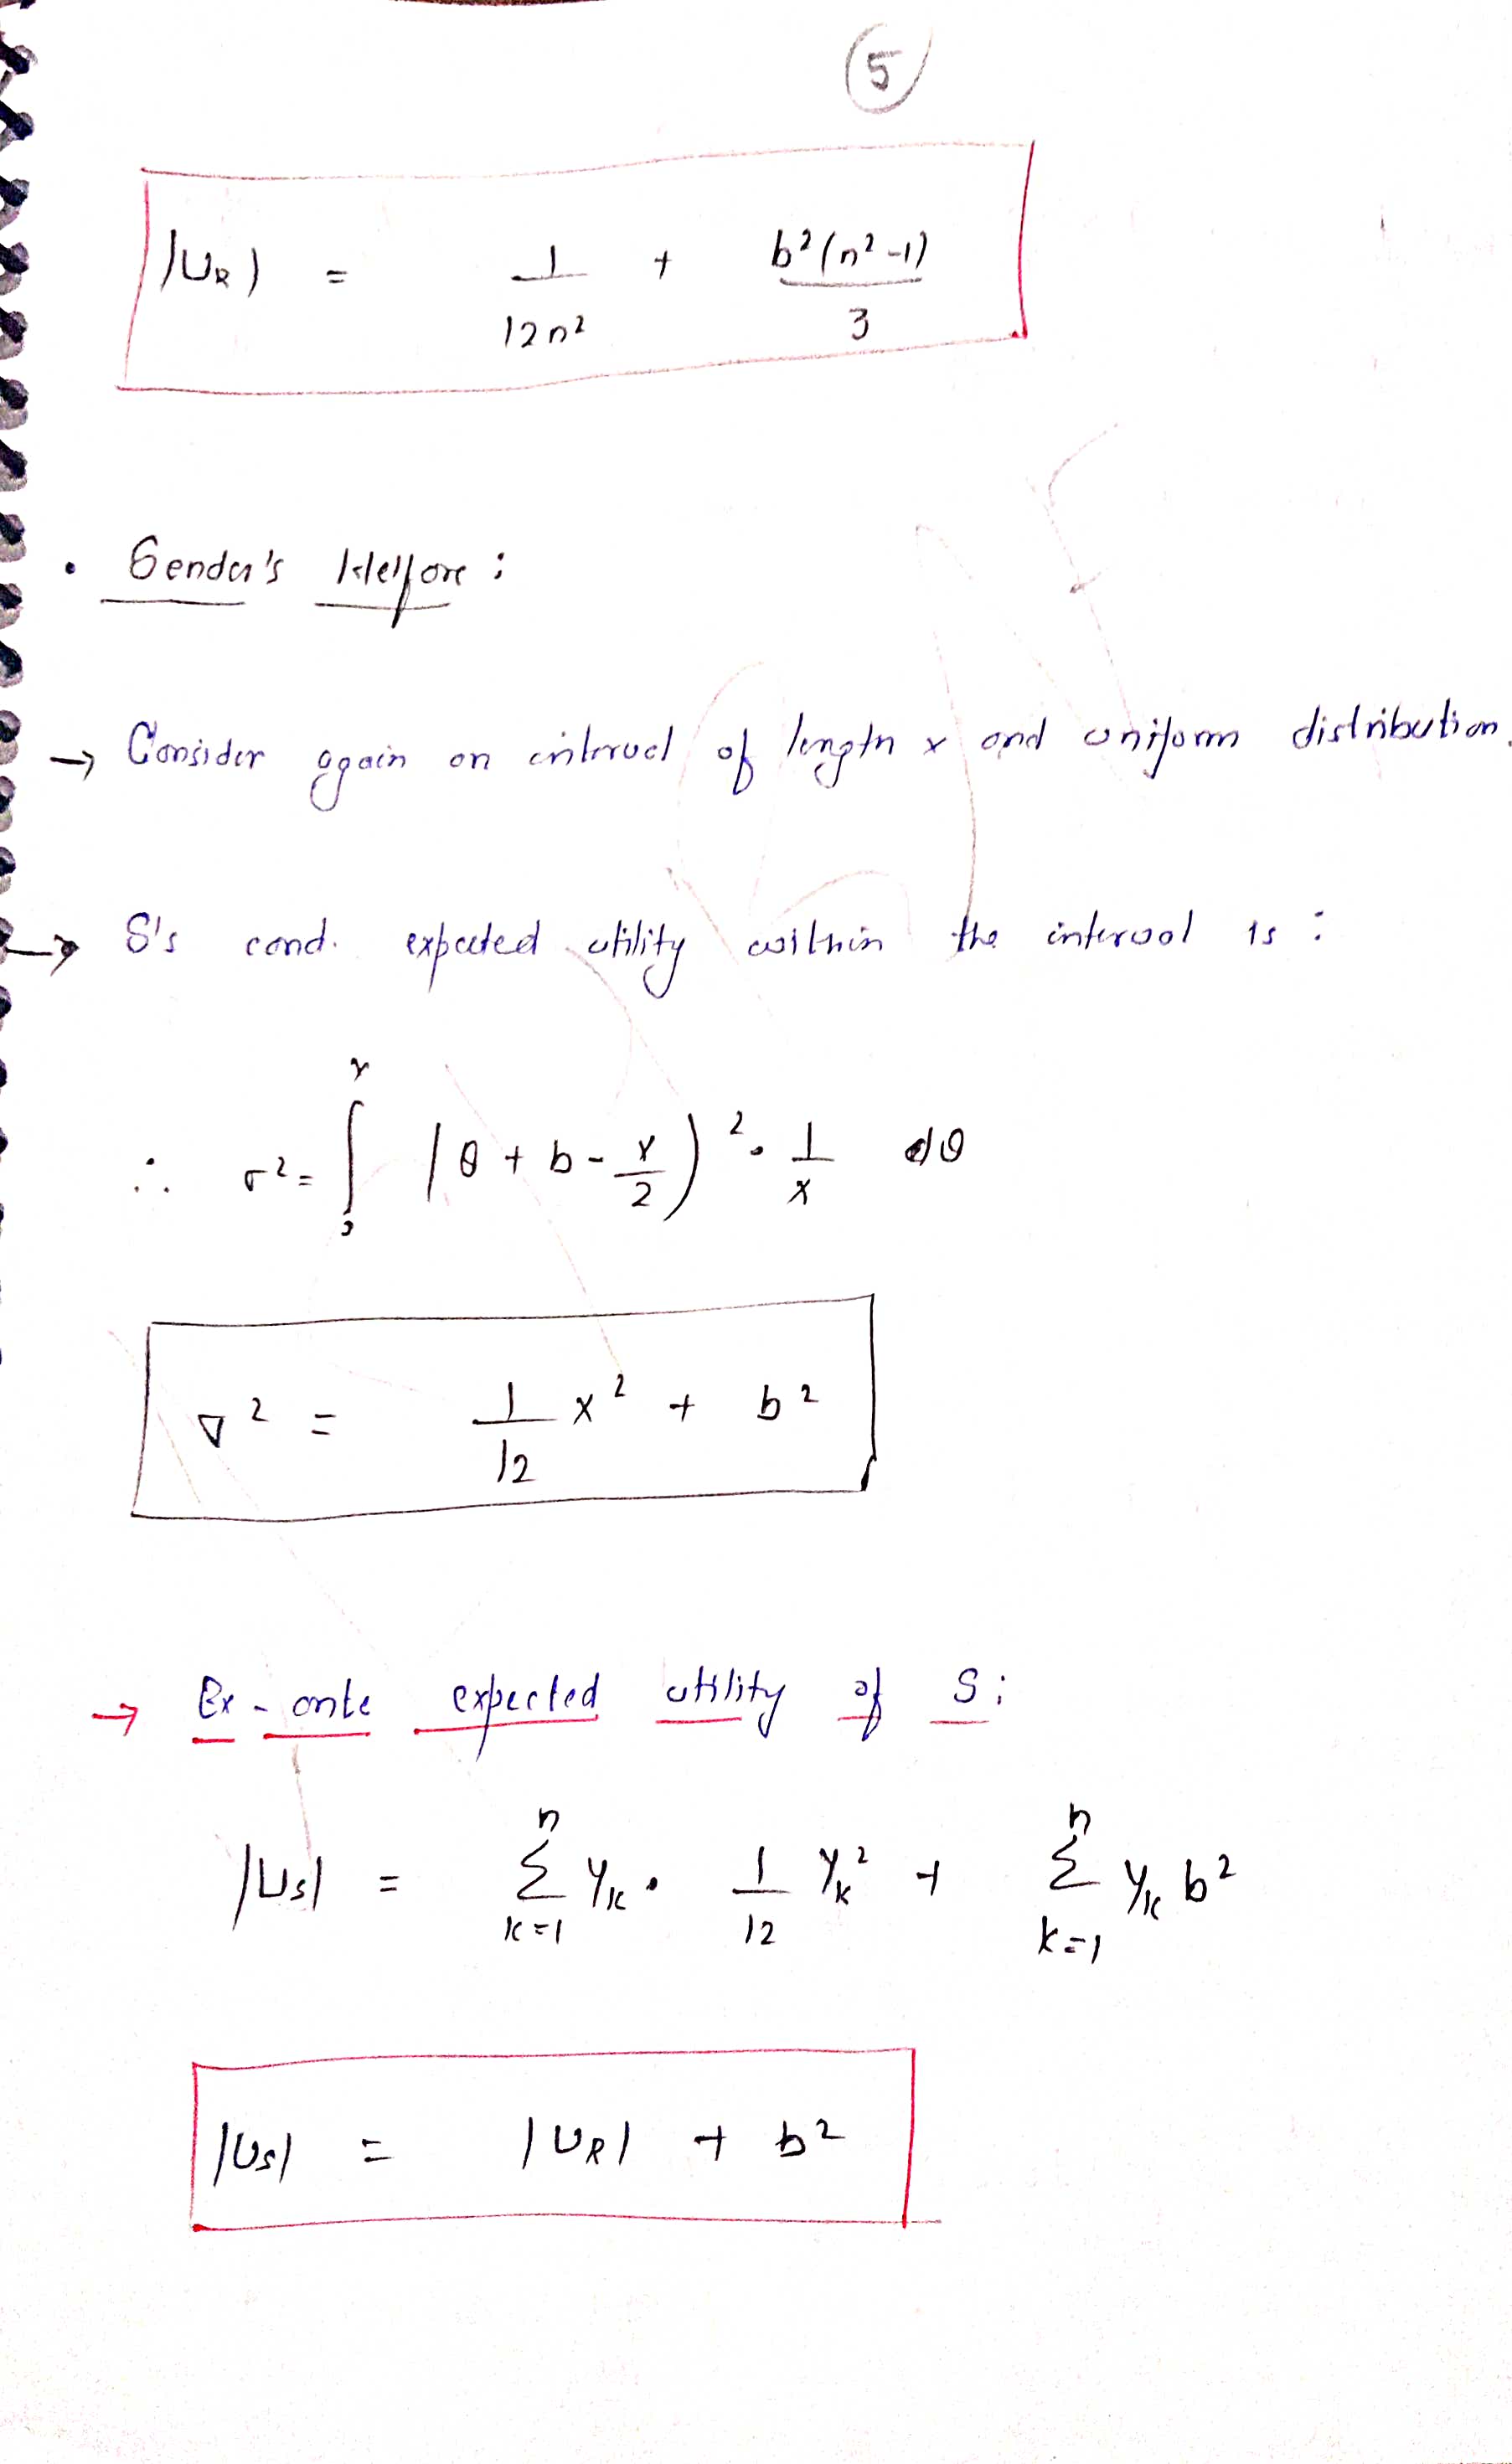 5
|U_R| = 1/12n² + b²(n²-1)/3
• Sender's Welfare :
→ Consider again an interval of length x and uniform distribution.
→ S's cond. expected utility within the interval is :
∴ σ² = ∫₀ˣ (θ + b - x/2)² · 1/x dθ
σ² = 1/12 x² + b²
→ Ex-ante expected utility of S :
|U_S| = Σ_{k=1}^{n} y_k · 1/12 y_k² + Σ_{k=1}^{n} y_k b²
|U_S| = |U_R| + b²